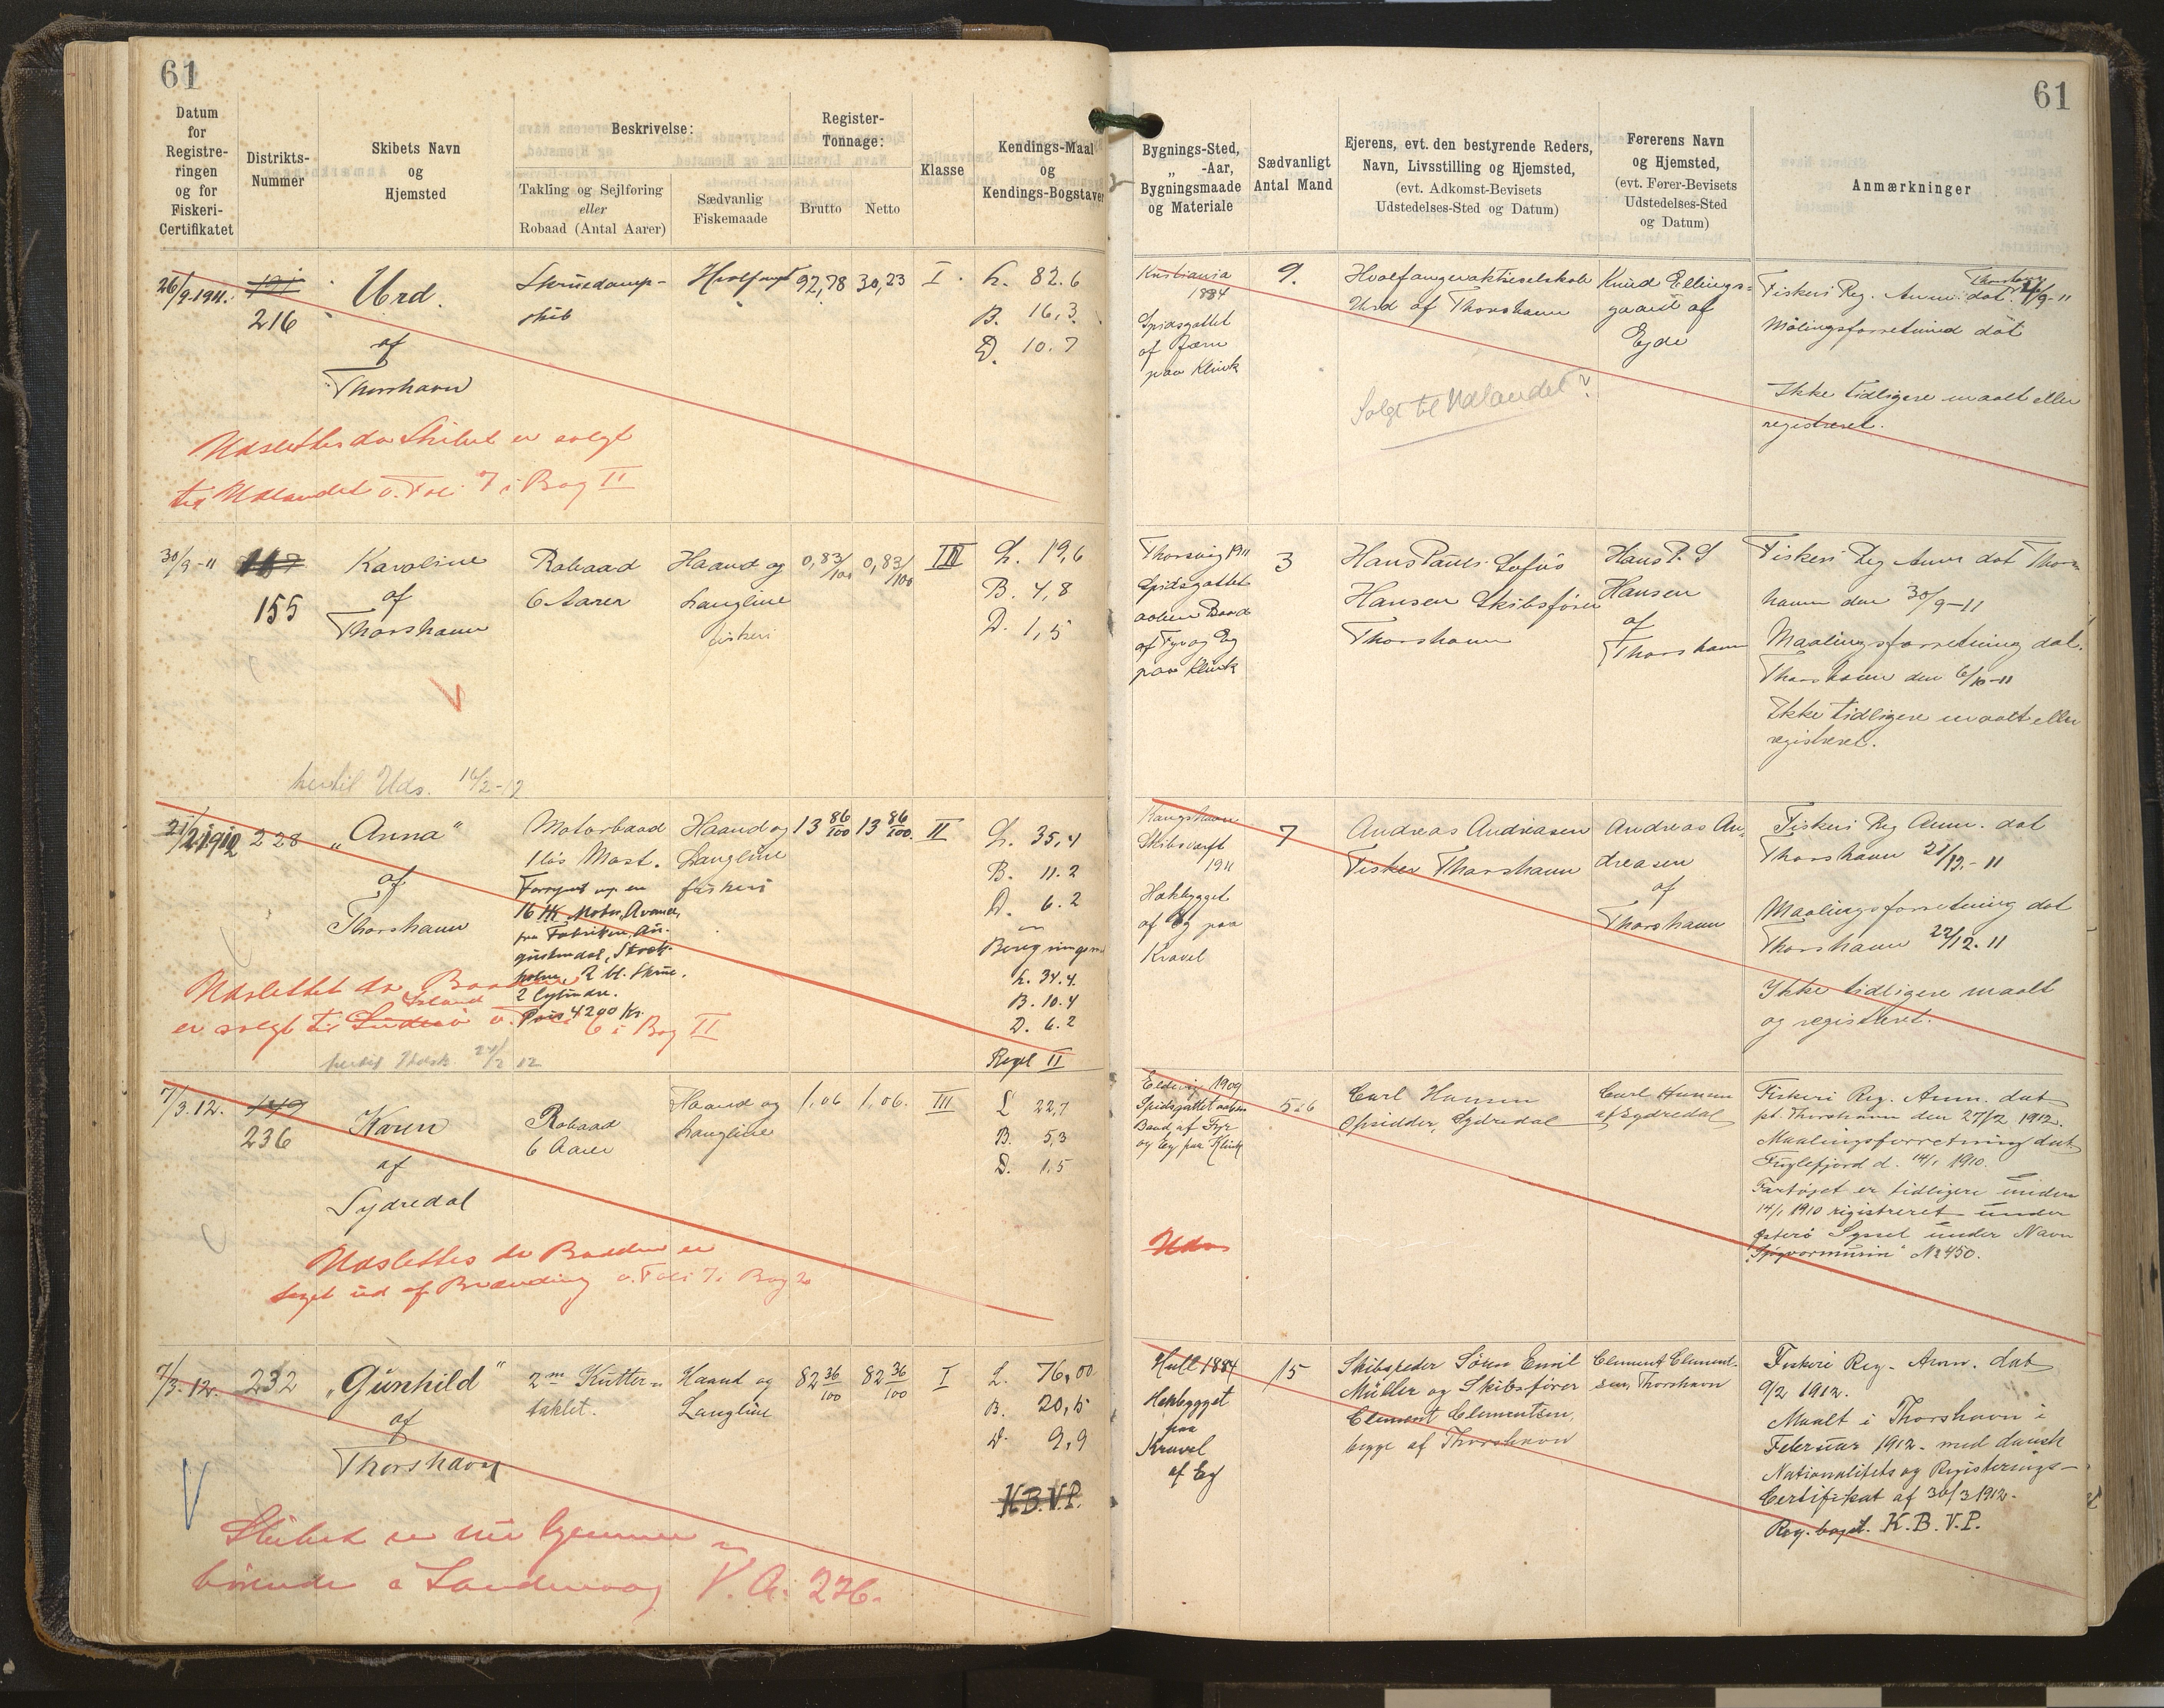 61
61
Datum
for
Registre-
ringen
og for
Fiskeri-
Certifikatet
Distrikts-
Nummer
Skibets Navn
og
Hjemsted
Beskrivelse:
Takling og Sejlføring
eller
Robaad (Antal Aarer)
Sædvanlig
Fiskemaade
Register-
Tonnage:
Brutto
Netto
Klasse
Kendings-Maal
og
Kendings-Bogstaver
Bygnings-Sted,
„ -Aar,
Bygningsmaade
og Materiale
Sædvanligt
Antal Mand
Ejerens, evt. den bestyrende Reders,
Navn, Livsstilling og Hjemsted,
(evt. Adkomst-Bevisets
Udstedelses-Sted og Datum)
Førerens Navn
og Hjemsted,
(evt. Fører-Bevisets
Udstedelses-Sted
og Datum)
Anmærkninger
26/9-1911.
216
Urd.
af
Thorshavn
Skruedamp-
skib
Hvalfangst
92,78
30,23
I
L. 82.6
B. 16,3
D. 10.7
Kristiania
1884
Spidsgattet
af Jærn
paa Klink
9.
Hvalfangeraktieselskab
Urd af Thorshavn
Knud Ellings-
gaard af
Ejde
Fiskeri Reg. Anm. dat. Thorshavn /9-11
Maalingsforretning dat
Ikke tidligere maalt eller
registreret.
Solgt til Udlandet?
Udslettes da Skibet er solgt
til Udlandet v. Foli 7 i Bog II
30/9-11
155
Karoline
af
Thorshavn
Robaad
6 Aarer
Haand og
Langline
fiskeri
0,83/100
0,83/100
III
L. 19,6
B. 4,8
D. 1,5
Thorsvig 1911
Spidsgattet
aaben Baad
af Fyr og Eg
paa Klink
3
Hans Pauli Sofus
Hansen Skibsfører
Thorshavn
Hans P. S
Hansen
af
Thorshavn
Fiskeri Reg Anm dat Thors-
havn den 30/9-11
Maalingsforretning dat.
Thorshavn den 6/10-11
Ikke tidligere maalt eller
registreret.
V
hertil Uds. 14/2-12
21/2 1912
228
„Anna"
af
Thorshavn
Motorbaad
1 løs Mast.
16 HK. Motor, Avance,
fra Fabriken Au-
gustendal, Stock-
holm, 2 bl. Skrue.
2 Cylindre.
Pris 4200 Kr.
Haand og
Langline
fiskeri
13 86/100
13 86/100.
II
L. 35,4
B. 11.2
D. 6.2
L. 34.4.
B. 10.4
D. 6.2
Regel II
Kongshavn
Skibsværft
1911
Hækbygget
af Eg paa
Kravel
7
Andreas Andreasen
Fisker Thorshavn
Andreas An-
dreasen
af
Thorshavn
Fiskeri Reg Anm. dat
Thorshavn 21/12.-11
Maalingsforretning dat
Thorshavn 22/12.11
Ikke tidligere maalt
og registreret.
Udslettet da Baaden
er solgt til Island v. Foli 6 i Bog II
7/3.12.
236
Karen
af
Sydredal
Robaad
6 Aarer
Haand og
Langline
1,06
1,06.
III
L 22,7
B. 5,3
D. 1,5
Eldevig 1909
Spidsgattet aaben
Baad af Fyr
og Eg paa Klink
5 á 6
Carl Hansen
Opsidder, Sydredal
Carl Hansen
af Sydredal
Fiskeri Reg. Anm. dat
pt. Thorshavn den 27/2 1912.
Maalingsforretning dat
Fuglefjord d. 14/1 1910.
Fartøjet er tidligere under
14/1 1910 registreret under
Østerø Syssel under Navn
№ 450.
Uds
Udslettes da Baaden er
taget ud af Brænding v. Foli 7 i Bog 2
7/3.12.
232
„Gunhild"
af
Thorshavn
2 m Kutter-
taklet.
Haand og
Langline
82 36/100
82 36/100
I
L. 76,00
B. 20,5
D. 9,9
K.B.V.P.
Hull 1884
Hækbygget
paa
Kravel
af Eg
15
Skibsreder Sören Emil
Müller og Skibsfører
Clement Clementsen,
begge af Thorshavn
Clement Clement-
sen, Thorshavn
Fiskeri Reg. Anm. dat
9/2 1912.
Maalt i Thorshavn i
Februar 1912 - med dansk
Nationalitets og Registrerings-
Certifikat af 30/3 1912.
Reg. bogst. K.B.V.P.
V
Skibet er nu hjemme
hörende i Sandevaag V.A. 236.